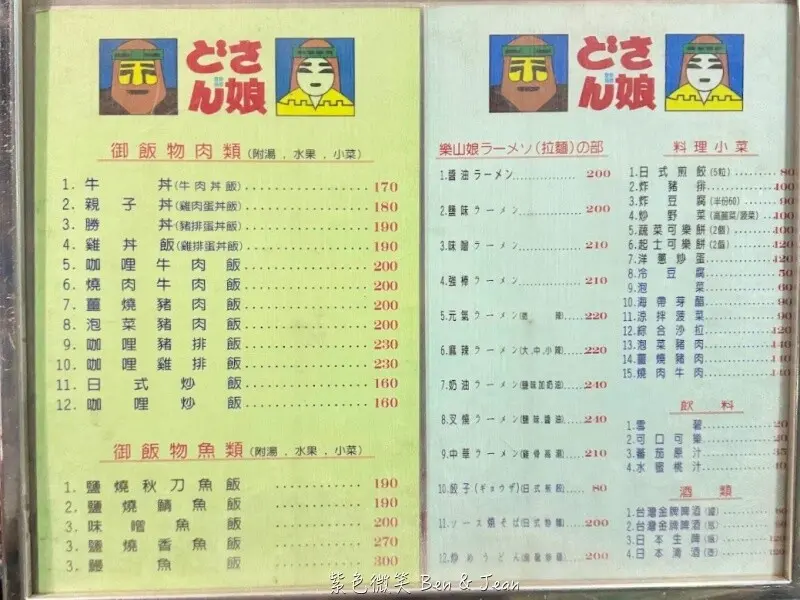 どさん娘
御飯物肉類(附湯﹐水果﹐小菜)
1. 牛丼(牛肉丼飯) 170
2. 親子丼(雞肉蛋丼飯) 180
3. 勝丼(豬排蛋丼飯) 190
4. 雞丼飯(雞排蛋丼飯) 190
5. 咖哩牛肉飯 200
6. 燒肉牛肉飯 200
7. 薑燒豬肉飯 200
8. 泡菜豬肉飯 200
9. 咖哩豬排飯 230
10. 咖哩雞排飯 230
11. 日式炒飯 160
12. 咖哩炒飯 160
御飯物魚類(附湯﹐水果﹐小菜)
1. 鹽燒秋刀魚飯 190
2. 鹽燒鯖魚飯 190
3. 味噌魚飯 200
3. 鹽燒香魚飯 270
3. 鰻魚飯 300
どさん娘
樂山娘ラーメソ(拉麵)の部
1.醬油ラーメン 200
2.鹽味ラーメン 200
3.味噌ラーメン 210
4.強棒ラーメン 210
5.元氣ラーメン 220
6.麻辣ラーメン(大.中.小辣) 220
7.奶油ラーメン(鹽味加奶油) 240
8.叉燒ラーメン(鹽味.醬油) 240
9.中華ラーメン(雞骨高湯) 210
10.餃子(ギョウザ)(日式煎餃) 80
11.ソース燒そば(日式炒麵) 200
200
料理小菜
1.日式煎餃(5粒) 80
2.炸豬排
3.炸豆腐(半份60) 90
4.炒野菜(高麗菜/菠菜)
5.蔬菜可樂餅(2個)
6.起士可樂餅(2個) 120
7.洋蔥炒蛋
8.冷豆腐 50
9.泡菜 60
10.海帶芽醋
11.涼拌菠菜 90
12.綜合沙拉 120
13.泡菜豬肉 140
14.薑燒豬肉 140
15.燒肉牛肉 140
飲料
1.雪碧 20
2.可口可樂 20
3.番茄原汁
4.水蜜桃汁
酒類
1.台灣金牌啤酒(罐)
2.台灣金牌啤酒(瓶)
3.日本生啤
4.日本清酒
紫色微笑 Ben & Jean